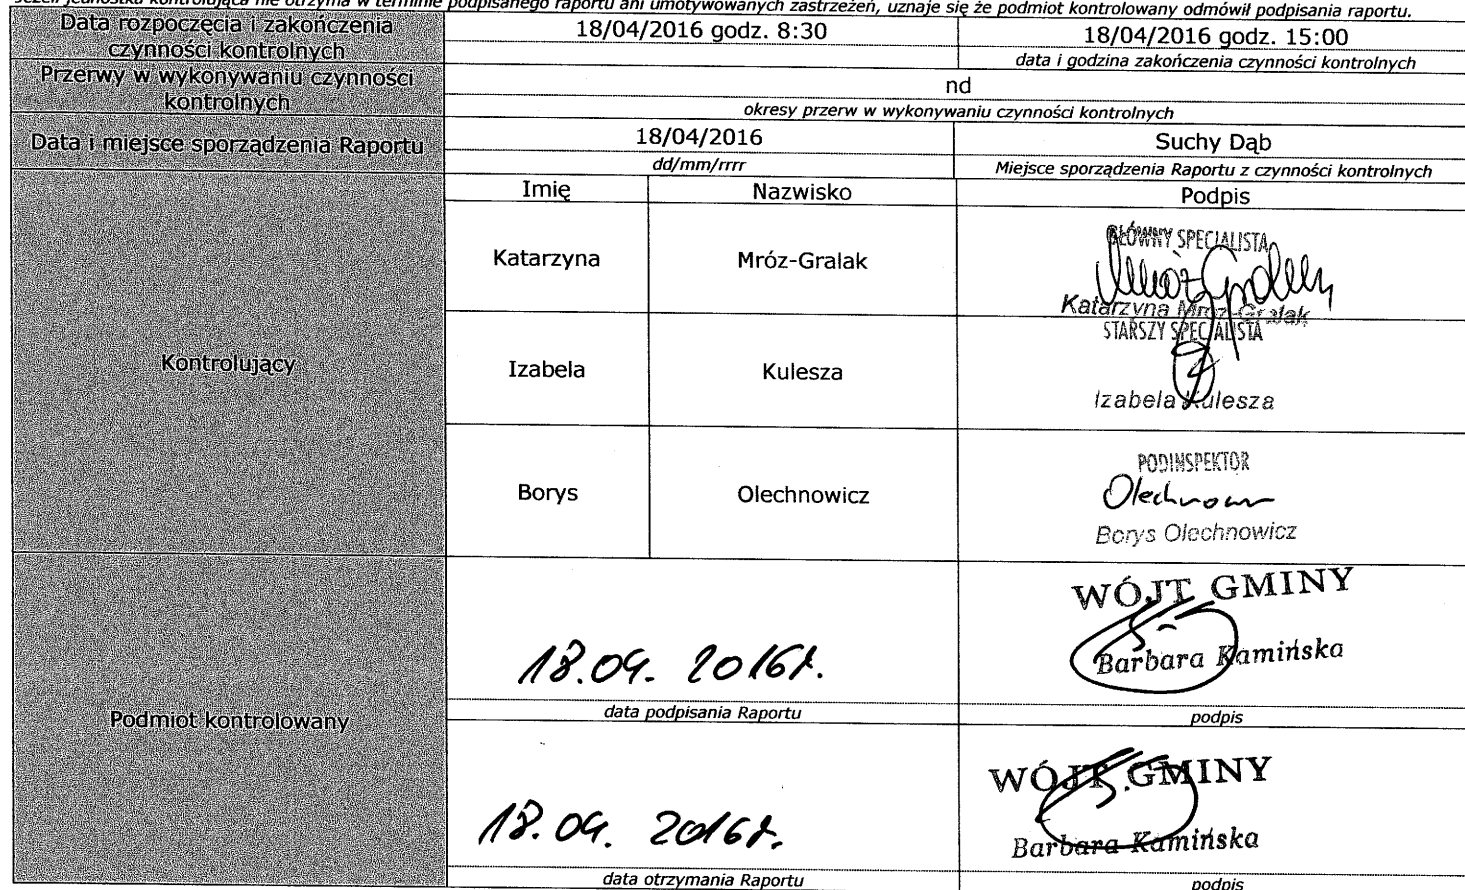 Jeżeli jednostka kontrolująca nie otrzyma w terminie podpisanego raportu ani umotywowanych zastrzeżeń, uznaje się że podmiot kontrolowany odmówił podpisania raportu.
Data rozpoczęcia i zakończenia
czynności kontrolnych
18/04/2016 godz. 8:30
18/04/2016 godz. 15:00
data i godzina zakończenia czynności kontrolnych
Przerwy w wykonywaniu czynności
kontrolnych
nd
okresy przerw w wykonywaniu czynności kontrolnych
Data i miejsce sporządzenia Raportu
18/04/2016
Suchy Dąb
dd/mm/rrrr
Miejsce sporządzenia Raportu z czynności kontrolnych
Kontrolujący
Imię
Nazwisko
Podpis
Katarzyna
Mróz-Gralak
GŁÓWNY SPECJALISTA
Mróz-Gralak
Katarzyna Mróz-Gralak
Izabela
Kulesza
STARSZY SPECJALISTA
Izabela Kulesza
Borys
Olechnowicz
PODINSPEKTOR
Borys Olechnowicz
Podmiot kontrolowany
18.04. 2016r.
WÓJT GMINY
Barbara Kamińska
data podpisania Raportu
podpis
18.04. 2016r.
WÓJT GMINY
Barbara Kamińska
data otrzymania Raportu
podpis